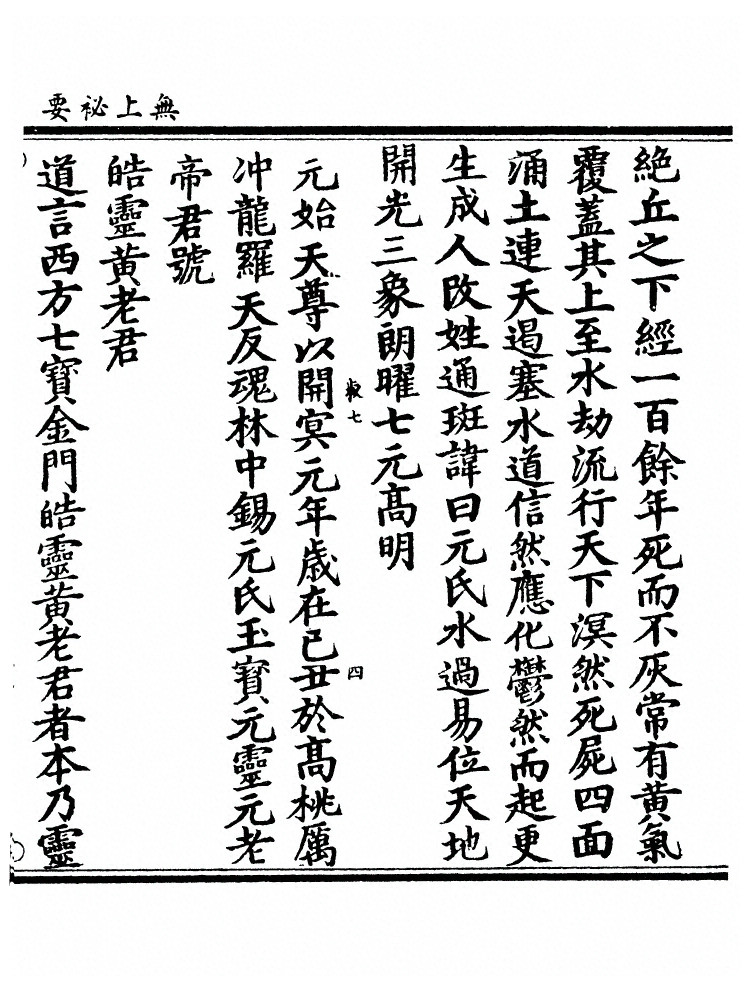 無上祕要
絶丘之下經一百餘年死而不灰常有黄氣
覆蓋其上至水劫流行天下溟然死屍四面
涌土連天遏塞水道信然應化鬱然而起更
生成人改姓通班諱曰元氏水過易位天地
開光三象朗曜七元髙明
叔七
四
元始天尊以開冥元年歳在己丑於髙桃厲
冲龍羅天反魂林中錫元氏玉寳元靈元老
帝君號
皓靈黄老君
道言西方七寳金門皓靈黄老君者本乃靈